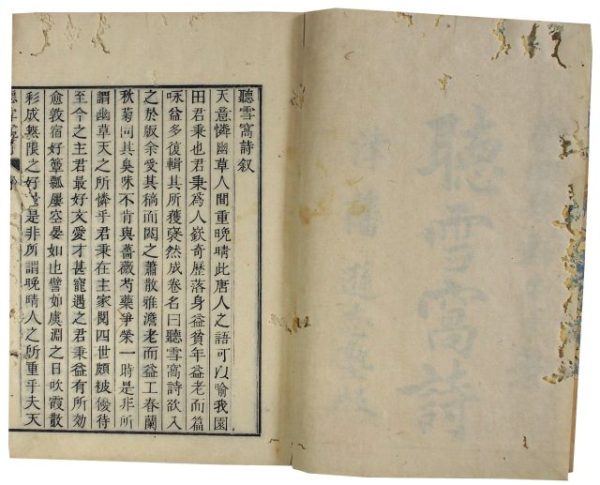 聽雪窩詩
聽雪窩詩叙
天意憐幽草人間重晚晴此唐人之語可以喻我園
田君秉也君秉爲人嶔奇歷落身益貧年益老而篇
咏益多復輯其所獲裒然成卷名曰聽雪窩詩欲入
之於版余受其稿而閱之蕭散雅澹老而益工春蘭
秋菊同其臭味不肯與薔薇芍藥爭榮一時是非所
謂幽草天之所憐乎君秉在主家閱四世頗被優待
至今之主君最好文愛才甚寵遇之君秉益有所効
愈敦宿好簞瓢屢空晏如也譬如虞淵之日吹霞散
彩成無限之好是非所謂晚晴人之所重乎夫天